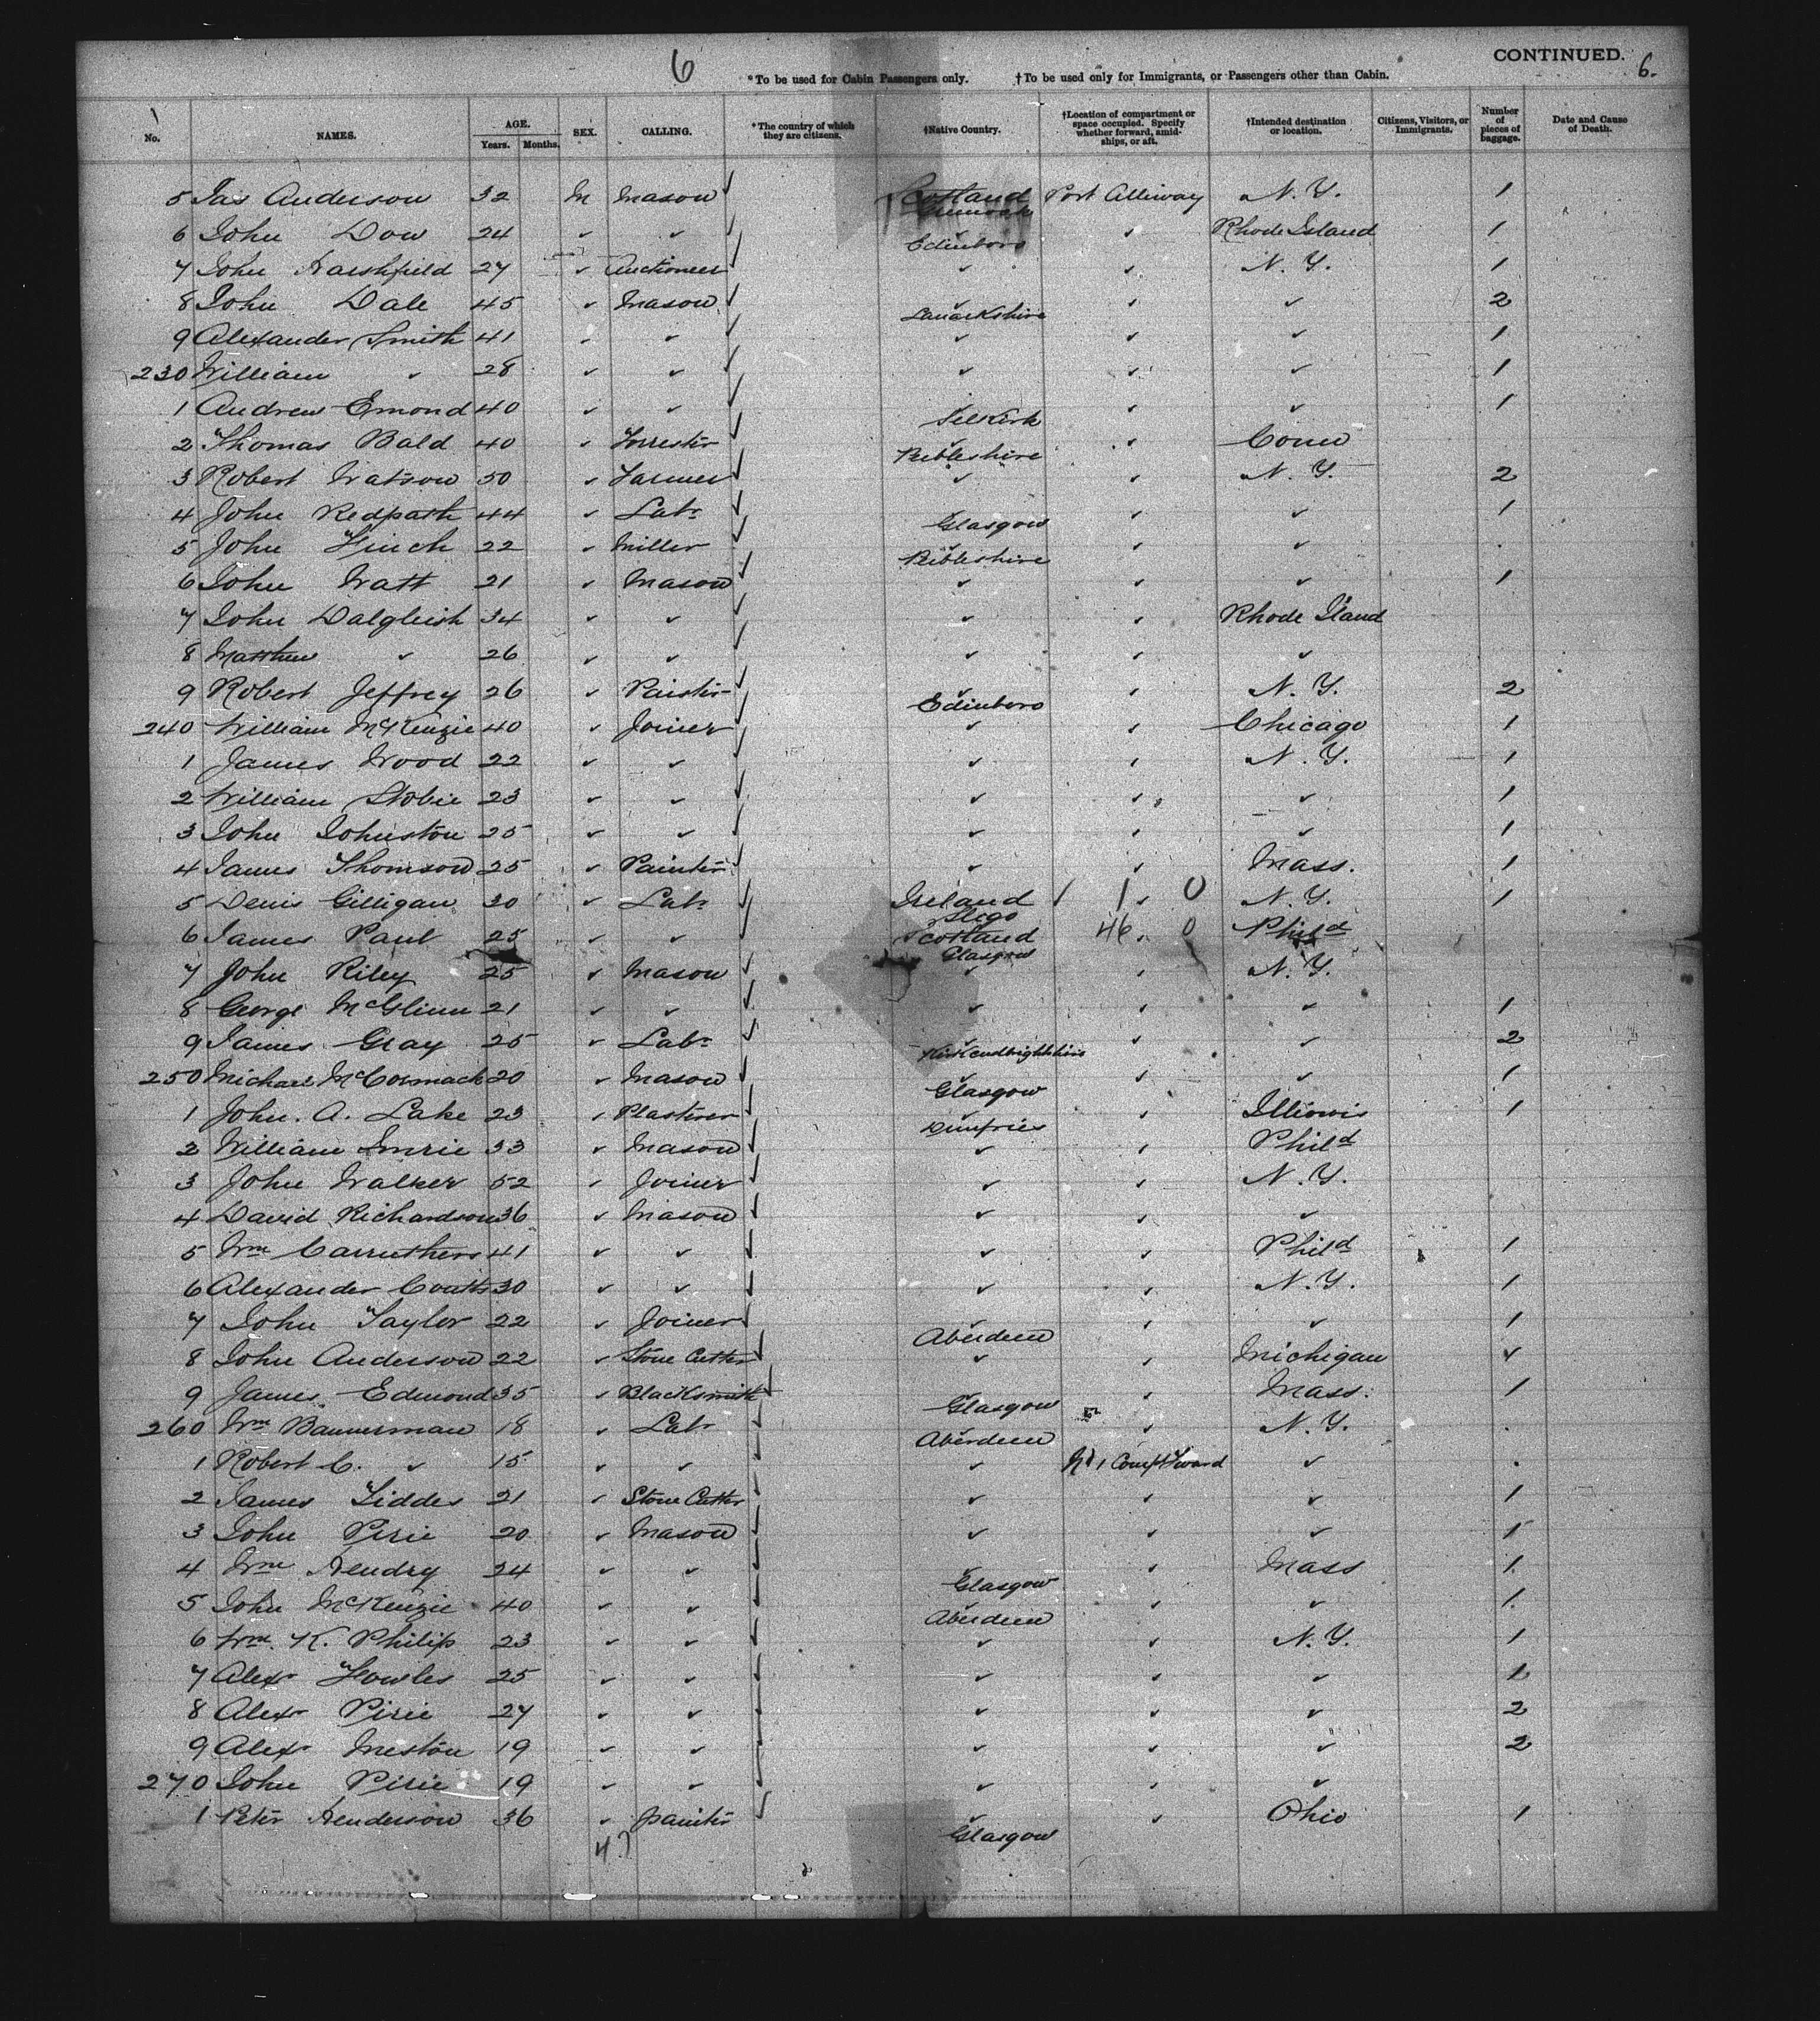 6
CONTINUED. 6.
*To be used for Cabin Passengers only. †To be used only for Immigrants, or Passengers other than Cabin.
No. NAMES. AGE. Years. Months. SEX. CALLING. *The country of which they are citizens. †Native Country. †Location of compartment or space occupied. Specify whether forward, amid-ships, or aft. †Intended destination or location. Citizens, Visitors, or Immigrants. Number of pieces of baggage. Date and Cause of Death.
5 Jas Anderson 32 M Mason ✓ Scotland Port Alliway N.Y. 1
6 John Dow 24 ✓ ✓ ✓ Edinboro ✓ Rhode Island 1
7 John 27 ✓ Auctioneer ✓ ✓ ✓ N.Y. 1
8 John Dale 45 ✓ Mason ✓ Lanarkshire ✓ ✓ 2
9 Alexander Smith 41 ✓ ✓ ✓ ✓ ✓ ✓ 1
230 William ✓ 28 ✓ ✓ ✓ ✓ ✓ ✓ 1
1 Andrew Emond 40 ✓ ✓ ✓ Selkirk ✓ ✓ 1
2 Thomas Bald 40 ✓ Forrester ✓ Peebleshire ✓ Conn
3 Robert Watson 50 ✓ Farmer ✓ ✓ ✓ N.Y. 2
4 John Redpath 44 ✓ Labr ✓ Glasgow ✓ ✓ 1
5 John 22 ✓ Miller ✓ Peebleshire ✓ ✓
6 John Watt 21 ✓ Mason ✓ ✓ ✓ ✓ 1
7 John Dalgleish 34 ✓ ✓ ✓ ✓ ✓ Rhode Island
8 Matthew ✓ 26 ✓ ✓ ✓ ✓ ✓ ✓
9 Robert Jeffrey 26 ✓ Painter ✓ Edinboro ✓ N.Y. 2
240 William McKenzie 40 ✓ Joiner ✓ ✓ ✓ Chicago 1
1 James Wood 22 ✓ ✓ ✓ ✓ ✓ N.Y. 1
2 William Stobie 23 ✓ ✓ ✓ ✓ ✓ ✓ 1
3 John Johnston 25 ✓ ✓ ✓ ✓ ✓ ✓ 1
4 James Thomson 25 ✓ Painter ✓ ✓ ✓ Mass. 1
5 Denis Gilligan 30 ✓ Labr ✓ Ireland Sligo ✓ 1 ✓ 0 N.Y. 1
6 James Paul 25 ✓ ✓ ✓ Scotland Glasgow 46 ✓ 0 Phild
7 John Riley 25 ✓ Mason ✓ ✓ ✓ N.Y.
8 George McGlinn 21 ✓ ✓ ✓ ✓ ✓ ✓ 1
9 James Gray 25 ✓ Labr ✓ Kirkcudbrightshire ✓ ✓ 2
250 Michael McCormack 20 ✓ Mason ✓ Glasgow ✓ ✓ 1
1 John. A. Lake 23 ✓ Plasterer ✓ Dumfries ✓ Illinois 1
2 William Imrie 33 ✓ Mason ✓ ✓ ✓ Phild
3 John Walker 52 ✓ Joiner ✓ ✓ ✓ N.Y.
4 David Richardson 36 ✓ Mason ✓ ✓ ✓ ✓
5 Wm Carruthers 41 ✓ ✓ ✓ ✓ ✓ Phild 1
6 Alexander Coutts 30 ✓ ✓ ✓ ✓ ✓ N.Y. 1
7 John Taylor 22 ✓ Joiner ✓ Aberdeen ✓ ✓ 1
8 John Anderson 22 ✓ Stone Cutter ✓ ✓ ✓ Michigan ✓
9 James Edmond 35 ✓ Blacksmith ✓ Glasgow ✓ Mass. 1
260 Wm Bannerman 18 ✓ Labr ✓ Aberdeen ✓ N.Y.
1 Robert C. ✓ 15 ✓ ✓ ✓ ✓ No 1 Compt Forward ✓
2 James 21 ✓ Stone Cutter ✓ ✓ ✓ ✓ 1
3 John Pirie 20 ✓ Mason ✓ ✓ ✓ ✓ 1
4 Wm Hendry 24 ✓ ✓ ✓ Glasgow ✓ Mass 1
5 John McKenzie 40 ✓ ✓ ✓ Aberdeen ✓ ✓ 1
6 Wm. K. Philip 23 ✓ ✓ ✓ ✓ ✓ N.Y. 1
7 Alexr Fowles 25 ✓ ✓ ✓ ✓ ✓ ✓ 1
8 Alexr Pirie 27 ✓ ✓ ✓ ✓ ✓ ✓ 2
9 Alexr Meston 19 ✓ ✓ ✓ ✓ ✓ ✓ 2
270 John Pirie 19 ✓ ✓ ✓ ✓ ✓ ✓
1 Peter Henderson 36 ✓ painter ✓ Glasgow ✓ Ohio 1
47